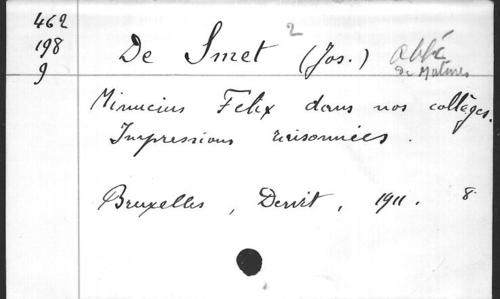 462
198
9
De Smet 2 (Jos.) abbé
de Malines
Minucius Felix dans nos collèges.
Impressions raisonnées.
Bruxelles, Dewit, 1911. 8